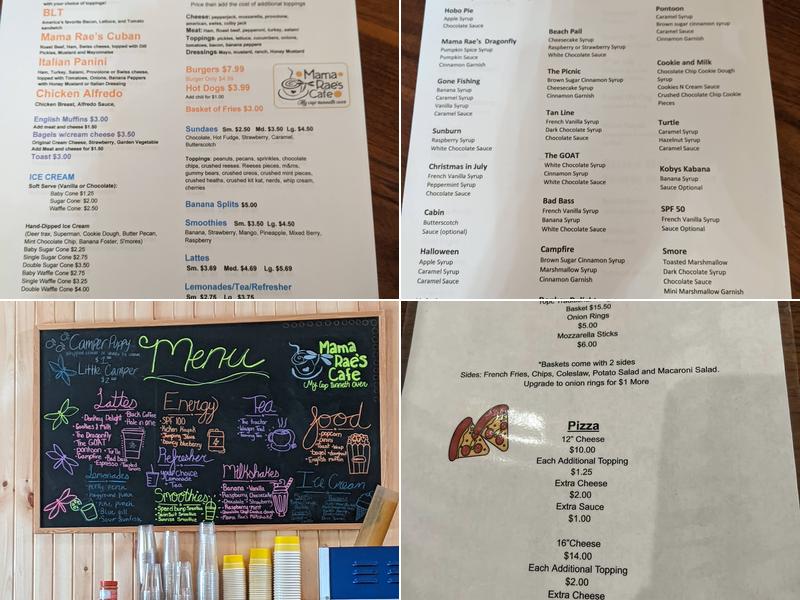 with your choice of toppings!
BLT
America's favorite Bacon, Lettuce, and Tomato
sandwich
Mama Rae's Cuban
Roast Beef, Ham, Swiss cheese, topped with Dill
Pickles, Mustard and Mayonnaise
Italian Panini
Ham, Turkey, Salami, Provolone or Swiss cheese,
topped with Tomatoes, Onions, Banana Peppers
with Honey Mustard or Italian Dressing
Chicken Alfredo
Chicken Breast, Alfredo Sauce,
English Muffins $3.00
Add meat and cheese $1.50
Bagels w/cream cheese $3.50
Original Cream Cheese, Strawberry, Garden Vegetable
Add Meat and cheese for $1.50
Toast $3.00
ICE CREAM
Soft Serve (Vanilla or Chocolate):
Baby Cone $1.25
Sugar Cone: $2.00
Waffle Cone: $2.50
Hand-Dipped Ice Cream
(Deer trax, Superman, Cookie Dough, Butter Pecan,
Mint Chocolate Chip, Banana Foster, S'mores)
Baby Sugar Cone $2.25
Single Sugar Cone $2.75
Double Sugar Cone $3.50
Baby Waffle Cone $2.75
Single Waffle Cone $3.25
Double Waffle Cone $4.00
Price then add the cost of additional toppings
Cheese: pepperjack, mozzarella, provolone,
american, swiss, colby jack
Meat: Ham, roast beef, pepperoni, turkey, salami
Toppings: pickles, lettuce, cucumbers, onions,
tomatoes, bacon, banana peppers
Dressings Mayo, mustard, ranch, Honey Mustard
Burgers $7.99
Burger Only $4.99
Hot Dogs $3.99
Add chili for $1.00
Basket of Fries $3.00
Mama
Rae's
Cafe
My cup runneth over
Sundaes Sm. $2.50 Md. $3.50 Lg. $4.50
Chocolate, Hot Fudge, Strawberry, Caramel,
Butterscotch
Toppings: peanuts, pecans, sprinkles, chocolate
chips, crushed reeses, Reeses pieces, m&ms,
gummy bears, crushed oreos, crushed mint pieces,
crushed heaths, crushed kit kat, nerds, whip cream,
cherries
Banana Splits $5.00
Smoothies Sm. $3.50 Lg. $4.50
Banana, Strawberry, Mango, Pineapple, Mixed Berry,
Raspberry
Lattes
Sm. $3.69 Med. $4.69 Lg. $5.69
Lemonades/Tea/Refresher
Sm $2.75 Lg $3.75
Hobo Pie
Apple Syrup
Chocolate Sauce
Mama Rae's Dragonfly
Pumpkin Spice Syrup
Pumpkin Sauce
Cinnamon Garnish
Gone Fishing
Banana Syrup
Caramel Syrup
Vanilla Syrup
Caramel Sauce
Sunburn
Raspberry Syrup
White Chocolate Sauce
Christmas in July
French Vanilla Syrup
Peppermint Syrup
Chocolate Sauce
Cabin
Butterscotch
Sauce (optional)
Halloween
Apple Syrup
Caramel Syrup
Caramel Sauce
Beach Pail
Cheesecake Syrup
Raspberry or Strawberry Syrup
White Chocolate Sauce
The Picnic
Brown Sugar Cinnamon Syrup
Cheesecake Syrup
Cinnamon Garnish
Tan Line
French Vanilla Syrup
Dark Chocolate Syrup
Chocolate Sauce
The GOAT
White Chocolate Syrup
Cinnamon Syrup
White Chocolate Sauce
Bad Bass
French Vanilla Syrup
Banana Syrup
White Chocolate Sauce
Campfire
Brown Sugar Cinnamon Syrup
Marshmallow Syrup
Cinnamon Garnish
Pontoon
Caramel Syrup
Brown sugar cinnamon syrup
Caramel Sauce
Cinnamon Garnish
Cookie and Milk
Chocolate Chip Cookie Dough
Syrup
Cookies N Cream Sauce
Crushed Chocolate Chip Cookie
Pieces
Turtle
Caramel Syrup
Hazelnut Syrup
Caramel Sauce
Kobys Kabana
Banana Syrup
Sauce Optional
SPF 50
French Vanilla Syrup
Sauce Optional
Smore
Toasted Marshmallow
Dark Chocolate Syrup
Chocolate Sauce
Mini Marshmallow Garnish
Camper Puppy
Little Camper
Menu
Mama
Rae's
Cafe
My cup runneth over
Lattes
Donkey Delight
Black Coffee
Hole in one
Cookies & Milk
The Dragonfly
The GOAT
pontoon
Turtle
Campfire
Bad bass
Espresso
Energy
SPF 100
Jumping Java
Tea
The tractor
Food
popcorn
Toast
bagel
English muffin
Refresher
your choice
Lemonade
Tea
Milkshakes
Banana
Vanilla
Raspberry
Chocolate
Strawberry
Ice Cream
Lemonades
Smoothies
Speed bump Smoothie
Sunrise Smoothie
Basket $15.50
Onion Rings
$5.00
Mozzarella Sticks
$6.00
*Baskets come with 2 sides
Sides: French Fries, Chips, Coleslaw, Potato Salad and Macaroni Salad.
Upgrade to onion rings for $1 More
Pizza
12" Cheese
$10.00
Each Additional Topping
$1.25
Extra Cheese
$2.00
Extra Sauce
$1.00
16"Cheese
$14.00
Each Additional Topping
$2.00
Extra Cheese